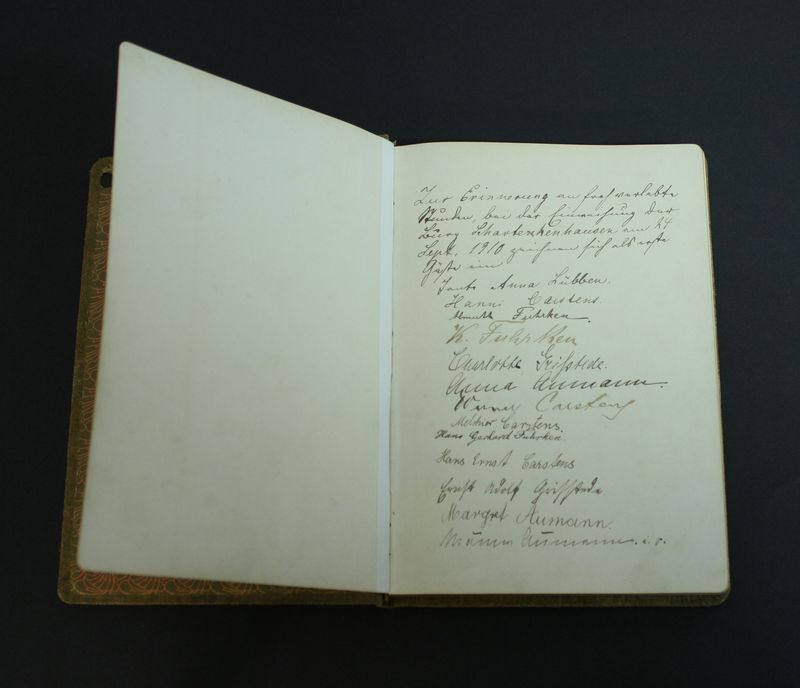 Zur Erinnerung an froh verlebte
Stunden, bei der Einweihung der
Burg Schartenhenhausen am 24
Sept. 1910 zeichnen sich als erste
Gäste ein
Tante Anna Lübben.
Hanni Carstens.
Fuhrken.
K. Fuhrken
Charlotte Griffstede.
Anna Aumann.
Carstens
Melchior Carstens.
Hans Gerhard Fuhrken.
Hans Ernst Carstens
Ernst Adolf Griffstede
Margret Aumann.
Aumann.